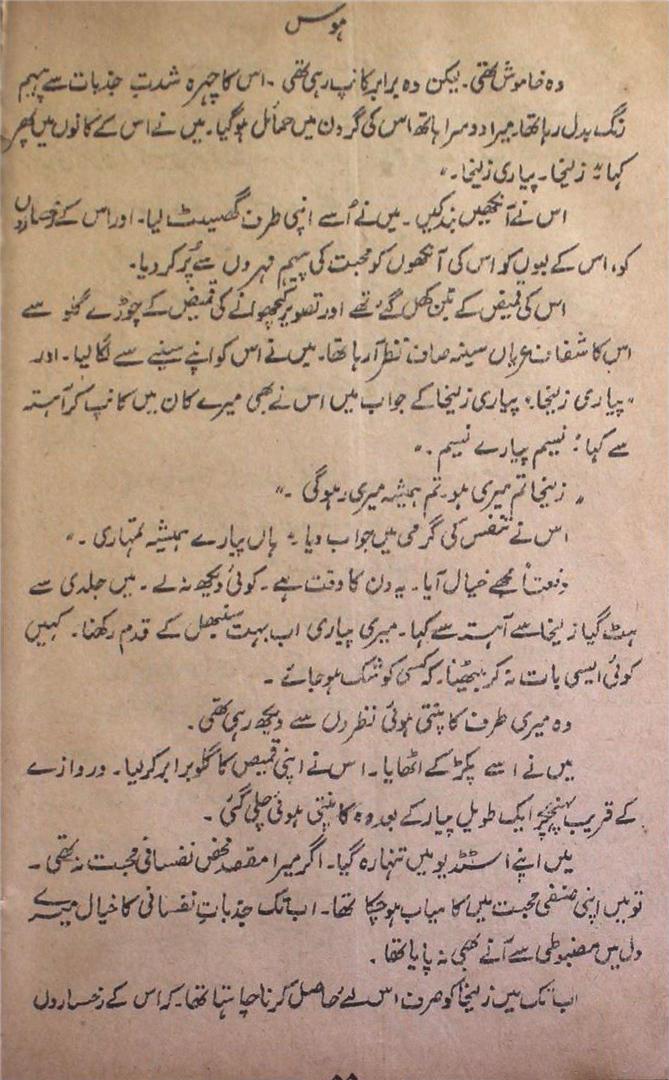 ہوس
وہ خاموش تھی۔ لیکن وہ برابر کانپ رہی تھی۔ اس کا چہرہ شدتِ جذبات سے پیہم
رنگ بدل رہا تھا۔ میرا دوسرا ہاتھ اس کی گردن میں حمائل ہوگیا۔ میں نے اس کے کانوں میں پھر
کہا "زلیخا۔ پیاری زلیخا۔"
اس نے آنکھیں بند کیں۔ میں نے اُسے اپنی طرف گھسیٹ لیا۔ اور اس کے رخساروں
کو، اس کے لبوں کو اس کی آنکھوں کو محبت کی پیہم مہروں سے پُر کر دیا۔
اس کی قمیض کے بٹن کھل گئے تھے اور تصویر کھچوانے کی قمیض کے چوڑے گلو سے
اس کا شفاف عریاں سینہ صاف نظر آرہا تھا۔ میں نے اس کو اپنے سینے سے لگا لیا۔ اور
"پیاری زلیخا، پیاری زلیخا کے جواب میں اس نے بھی میرے کان میں کانپ کر آہستہ
سے کہا: نسیم پیارے نسیم۔"
"زلیخا تم میری ہو۔ تم ہمیشہ میری رہوگی۔"
اس نے تنفس کی گرمی میں جواب دیا "ہاں پیارے ہمیشہ تمہاری۔"
دفعتاً مجھے خیال آیا۔ یہ دن کا وقت ہے۔ کوئی دیکھ نہ لے۔ میں جلدی سے
ہٹ گیا زلیخا سے آہستہ سے کہا۔ میری پیاری اب بہت سنبھل کے قدم رکھنا۔ کہیں
کوئی ایسی بات نہ کر بیٹھنا۔ کہ کسی کو شک ہو جائے۔
وہ میری طرف کانپتی ہوئی نظروں سے دیکھ رہی تھی۔
میں نے اسے پکڑ کے اٹھایا۔ اس نے اپنی قمیص کا گلو برابر کر لیا۔ دروازے
کے قریب پہنچکر ایک طویل پیار کے بعد وہ کانپتی ہوئی چلی گئی۔
میں اپنے اسٹڈیو میں تنہا رہ گیا۔ اگر میرا مقصد محض نفسانی محبت نہ تھی۔
تو میں اپنی صنفی محبت میں کامیاب ہو چکا تھا۔ اب تک جذباتِ نفسانی کا خیال میرے
دل میں مضبوطی سے آنے بھی نہ پایا تھا۔
اب تک میں زلیخا کو صرف اس لئے حاصل کرنا چاہتا تھا۔ کہ اس کے رخساروں